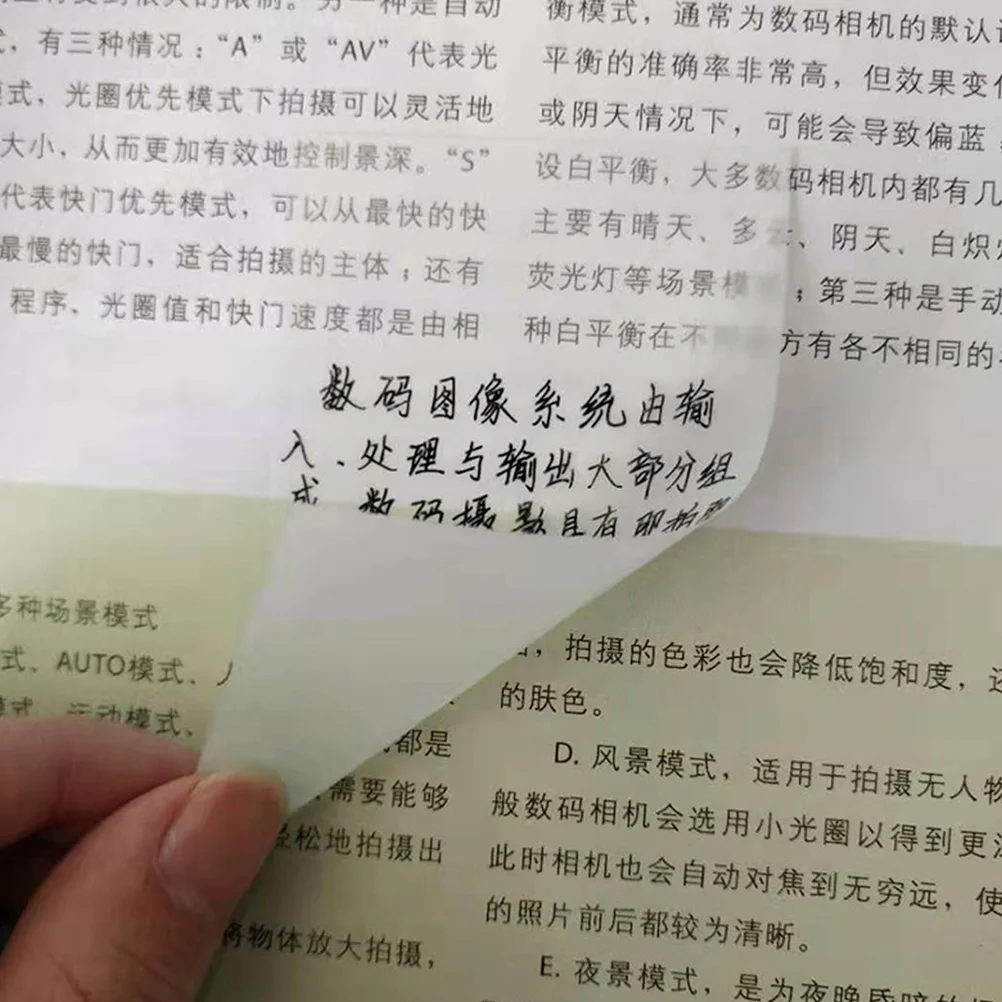 有三种情况：“A”或“AV”代表光
模式，光圈优先模式下拍摄可以灵活地
大小，从而更加有效地控制景深。“S”
代表快门优先模式，可以从最快的快
最慢的快门，适合拍摄的主体；还有
程序、光圈值和快门速度都是由相
衡模式，通常为数码相机的默认
平衡的准确率非常高，但效果变
或阴天情况下，可能会导致偏蓝
设白平衡，大多数码相机内都有几
主要有晴天、多云、阴天、白炽
荧光灯等场景模；第三种是手动
种白平衡在不方有各不相同的
数码图像系统由输
入、处理与输出大部分组
成 数码摄影具有即拍
多种场景模式
式、AUTO模式、
模式、运动模式、
都是
需要能够
轻松地拍摄出
将物体放大拍摄，
，拍摄的色彩也会降低饱和度，
的肤色。
D. 风景模式，适用于拍摄无人物
般数码相机会选用小光圈以得到更
此时相机也会自动对焦到无穷远，使
的照片前后都较为清晰。
E. 夜景模式，是为夜晚昏暗的